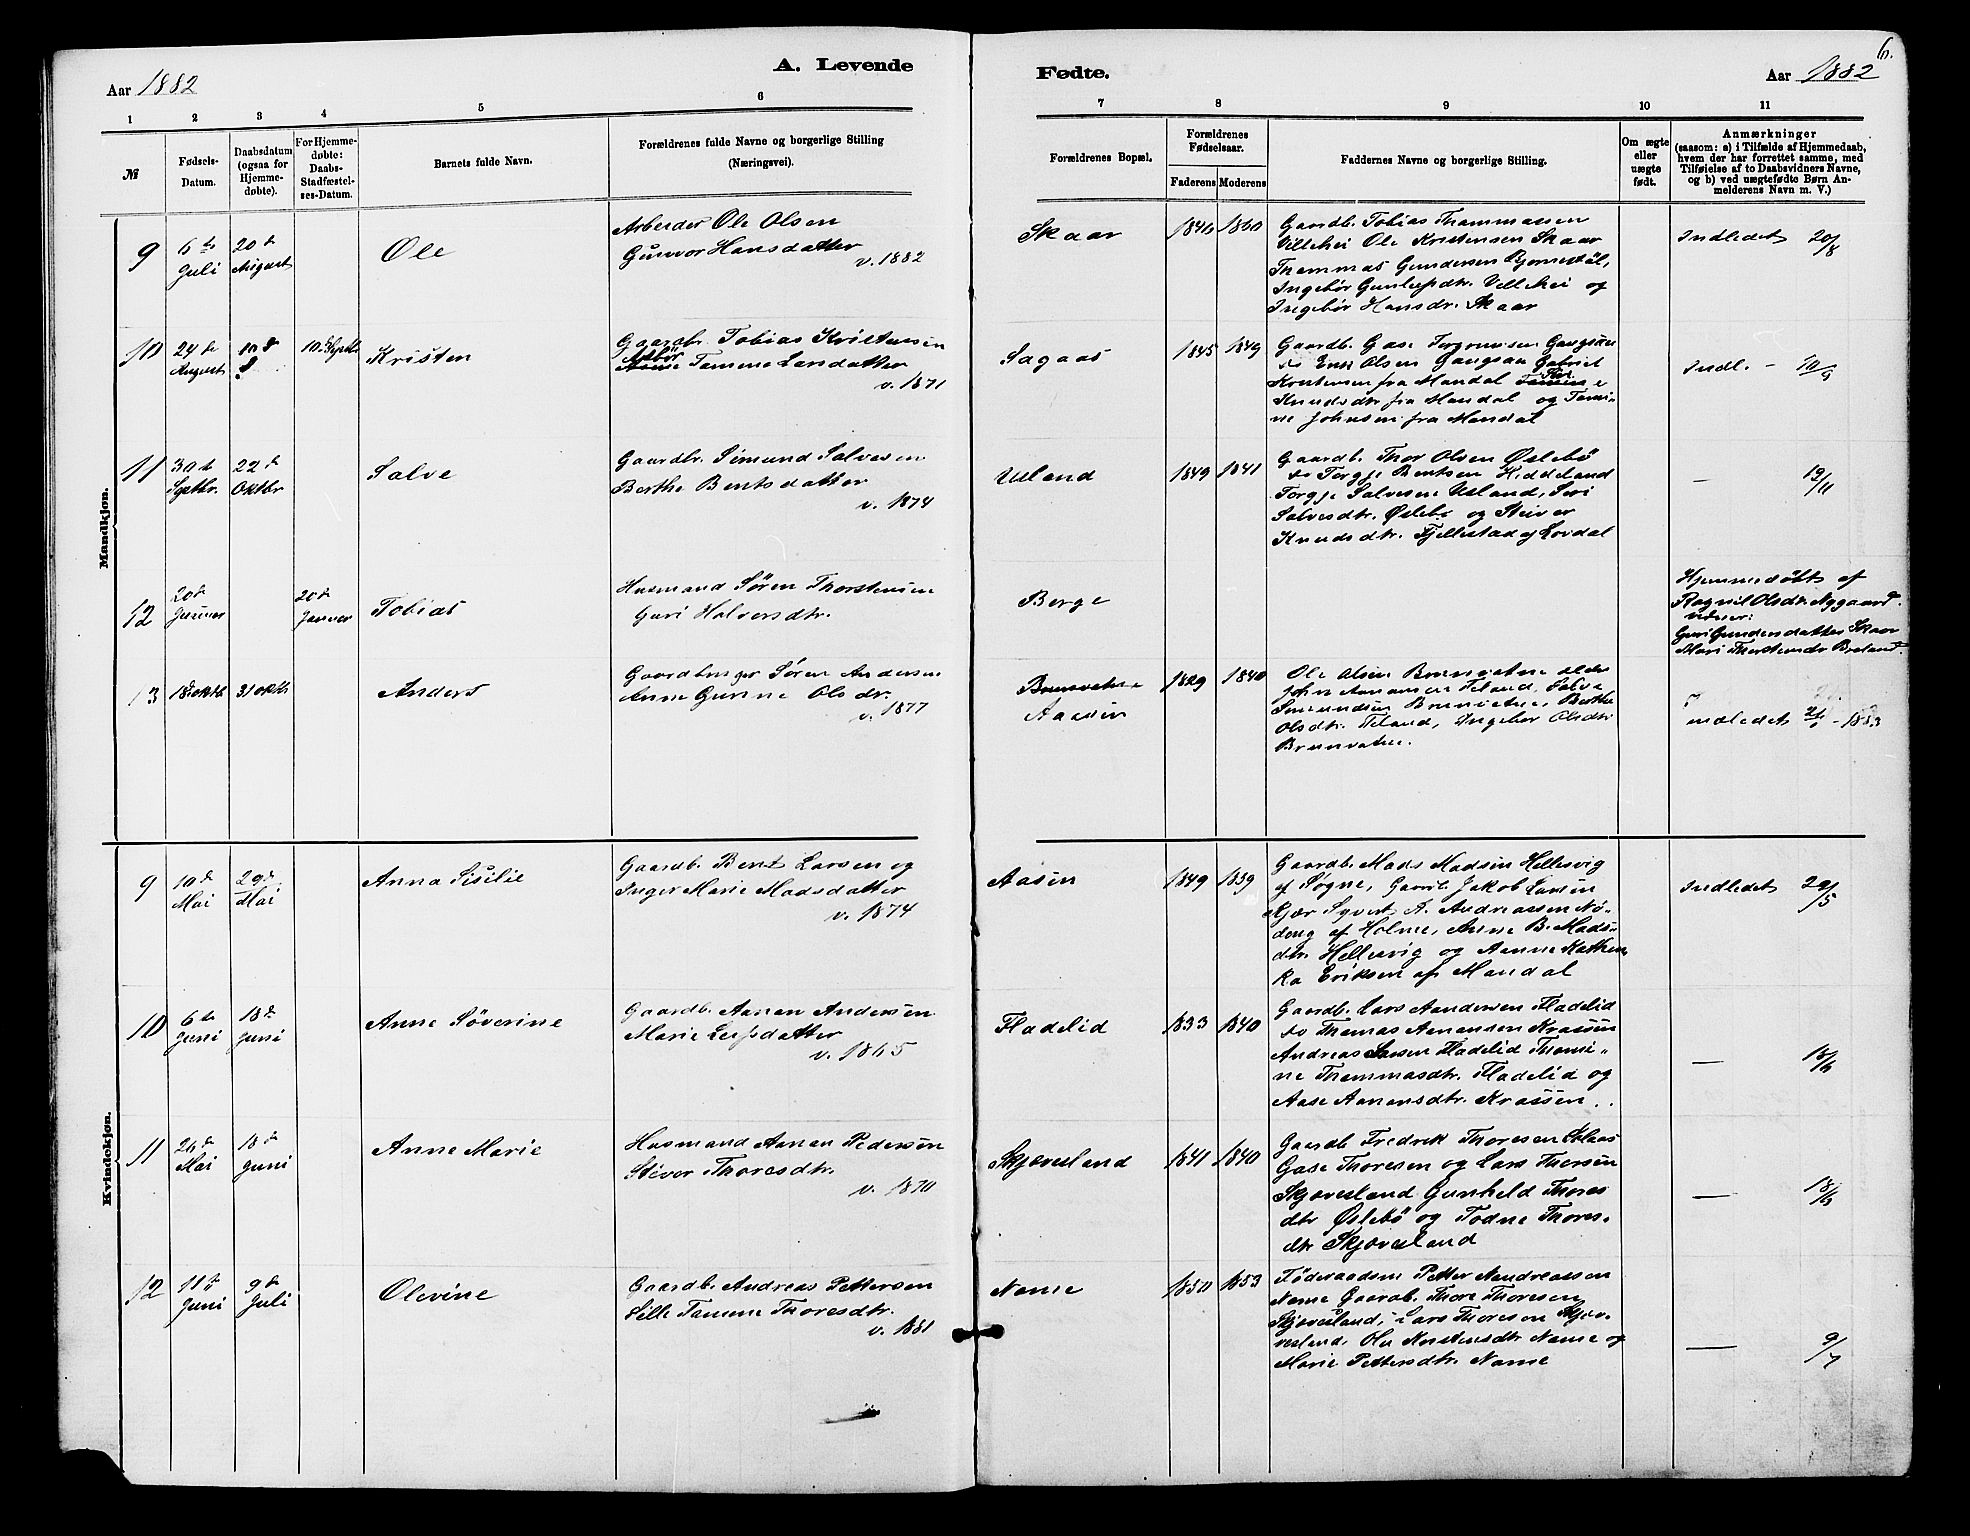 6.
A. Levende
Fødte.
Aar 1882
Aar 1882
1 2 3 4 5 6 7 8 9 10 11
№
Fødsels-
Datum.
Daabsdatum
(ogsaa for
Hjemme-
døbte).
For Hjemme-
døbte:
Daabs-
Stadfæstel-
ses-Datum.
Barnets fulde Navn.
Forældrenes fulde Navne og borgerlige Stilling
(Næringsvei).
Forældrenes Bopæl.
Forældrenes
Fødselsaar.
Faderens Moderens
Faddernes Navne og borgerlige Stilling.
Om ægte
eller
uægte
født.
Anmærkninger
(saasom: a) i Tilfælde af Hjemmedaab,
hvem der har forrettet samme, med
Tilføielse af to Daabsvidners Navne,
og b) ved uægtefødte Børn An-
melderens Navn m. V.)
Mandkjøn.
9
6te
Juli
20de
August
Ole
Arbeider Ole Olsen
Gunvor Hansdatter
v. 1882
Skaar
1840 1860
Gaardb. Tobias Thommassen
Ville Hei Ole Kristensen Skaar
Thommas Gundersen Bjørnestøl,
Ingebør Gunleifsdtr. Ville Hei og
Ingebør Hansdr. Skaar
Indledet 20/8
10
24de
August
10de
10de Septbr
Kristen
Gaardbr. Tobias Kristensen
Tamme Larsdatter
v. 1871
Sagaas
1845 1849
Gaardb. Gase Torgrimsen Gangsaa
do Erik Olsen Gangsaa Gabriel
Kristensen fra Mandal
Knudsdtr fra Mandal og Tomi-
ne Johnsen fra Mandal
Indl. - 10/9
11
30te
Septbr.
22de
Oktbr
Salve
Gaardbr. Simund Salvesen
Berthe Bentsdatter
v. 1874
Usland
1849 1841
Gaardb. Thor Olsen Øslebø
do Torgje Bentsen Kiddeland
Torgje Salvesen Usland, Siri
Salvesdtr. Øslebø og Steiver
Knudsdtr. Fjellestad af Lovdal
— 12/11
12
20de
Januar
20de
Januar
Tobias
Husmand Søren Thorstensen
Guri Halvorsdtr.
Berge
Hjemmedøbt af
Ragnil Olsdtr. Nygaard
vidner:
Guri Gundersdatter Skaar
Mari Thorstensdr Breland.
13
18de oktb
31 oktb
Anders
Gaardbruger Søren Andersen
Anne Gurine Olsdr.
v. 1877
Brunvatne
Aasen
1829 1840
Ole Olsen Brunvatne elder
John Aanansen Fieland, Salve
Simundsen Brunvatne, Berthe
Olsdtr. Fieland, Ingebor Olsdtr
Brunvatne.
indledet 21/1 - 1883
Kvindekjøn.
9
10de
Mai
29de
Mai
Anna Sisilie
Gaardb. Bent Larsen og
Inger Marie Madsdatter
v. 1874
Aasen
1849 1839
Gaardb. Mads Madsen Hellesvig
af Søgne, Gaardb. Jakob Larsen
Kjær Syvert A. Andreassen Nø-
ding af Holme, Anne B. Mads-
dtr. Hellesvig og Aanne Kathin-
ka Eriksen af Mandal
Indledet 29/5
10
6te
Juni
18de
Juni
Anne Søverine
Gaardb. Aanen Andersen
Marie Leifsdatter
v. 1865
Fladelid
1833 1840
Gaardb. Lars Aandersen Fladelid
do Thomas Aanansen Kraasen
Andreas Larsen Fladelid Thomi-
ne Thommasdtr. Fladelid og
Aase Aanansdtr. Kraasen.
— 18/6
11
26de
Mai
18de
Juni
Anne Marie
Husmand Aanen Pedersen
Siver Thoresdtr.
v. 1870
Skjævesland
1841 1840
Gaardb Fredrik Thoresen
Gase Thoresen og Lars Thorsen
Skjævesland Gunheld Thores
dtr Øslebø og Todne Thores-
dtr Skjævesland
— 18/6
12
11te
Juni
9de
Juli
Olevine
Gaardb. Andreas Pettersen
Sille Tamme Thoresdtr.
v. 1881
Nome
1850 1853
Føderaadsm Petter Aandreassen
Nome Gaardb. Thore Thoresen
Skjævesland, Lars Thoresen Skjæ-
vesland, Ole Kristensdtr Nome og
Marie Pettersdtr. Nome
— 9/7